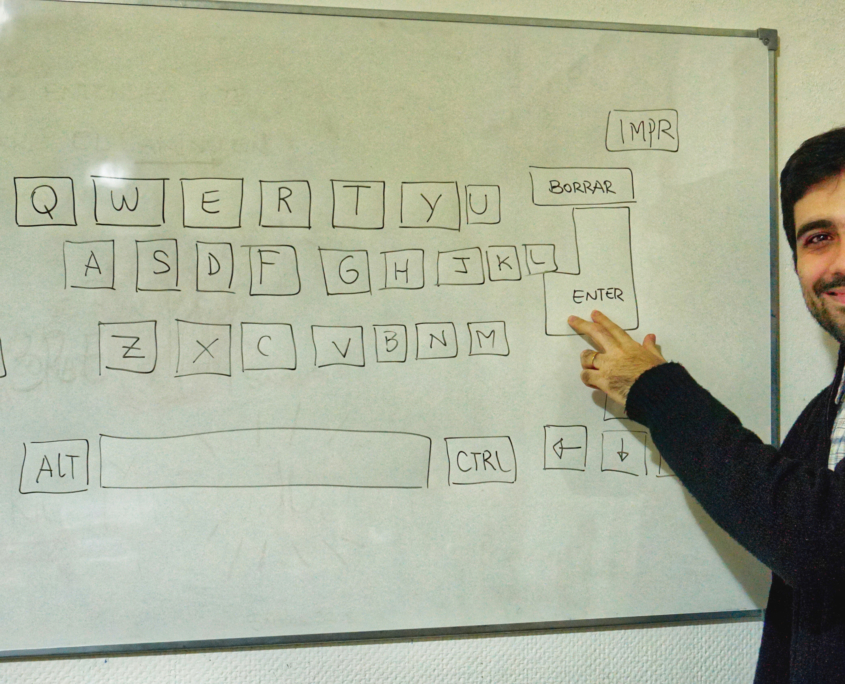 IMPR
BORRAR
Q W E R T Y U
A S D F G H J K L
ENTER
Z X C V B N M
ALT CTRL ← ↓